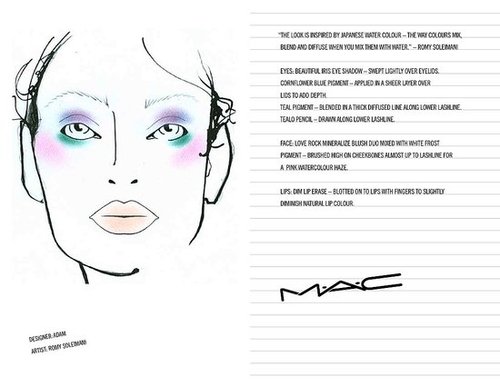 "THE LOOK IS INSPIRED BY JAPANESE WATER COLOUR – THE WAY COLOURS MIX,
BLEND AND DIFFUSE WHEN YOU MIX THEM WITH WATER." – ROMY SOLEIMANI
EYES: BEAUTIFUL IRIS EYE SHADOW – SWEPT LIGHTLY OVER EYELIDS.
CORNFLOWER BLUE PIGMENT – APPLIED IN A SHEER LAYER OVER
LIDS TO ADD DEPTH.
TEAL PIGMENT – BLENDED IN A THICK DIFFUSED LINE ALONG LOWER LASHLINE.
TEALO PENCIL – DRAWN ALONG LOWER LASHLINE.
FACE: LOVE ROCK MINERALIZE BLUSH DUO MIXED WITH WHITE FROST
PIGMENT – BRUSHED HIGH ON CHEEKBONES ALMOST UP TO LASHLINE FOR
A PINK WATERCOLOUR HAZE.
LIPS: DIM LIP ERASE – BLOTTED ON TO LIPS WITH FINGERS TO SLIGHTLY
DIMINISH NATURAL LIP COLOUR.
M·A·C
DESIGNER: ADAM
ARTIST: ROMY SOLEIMANI